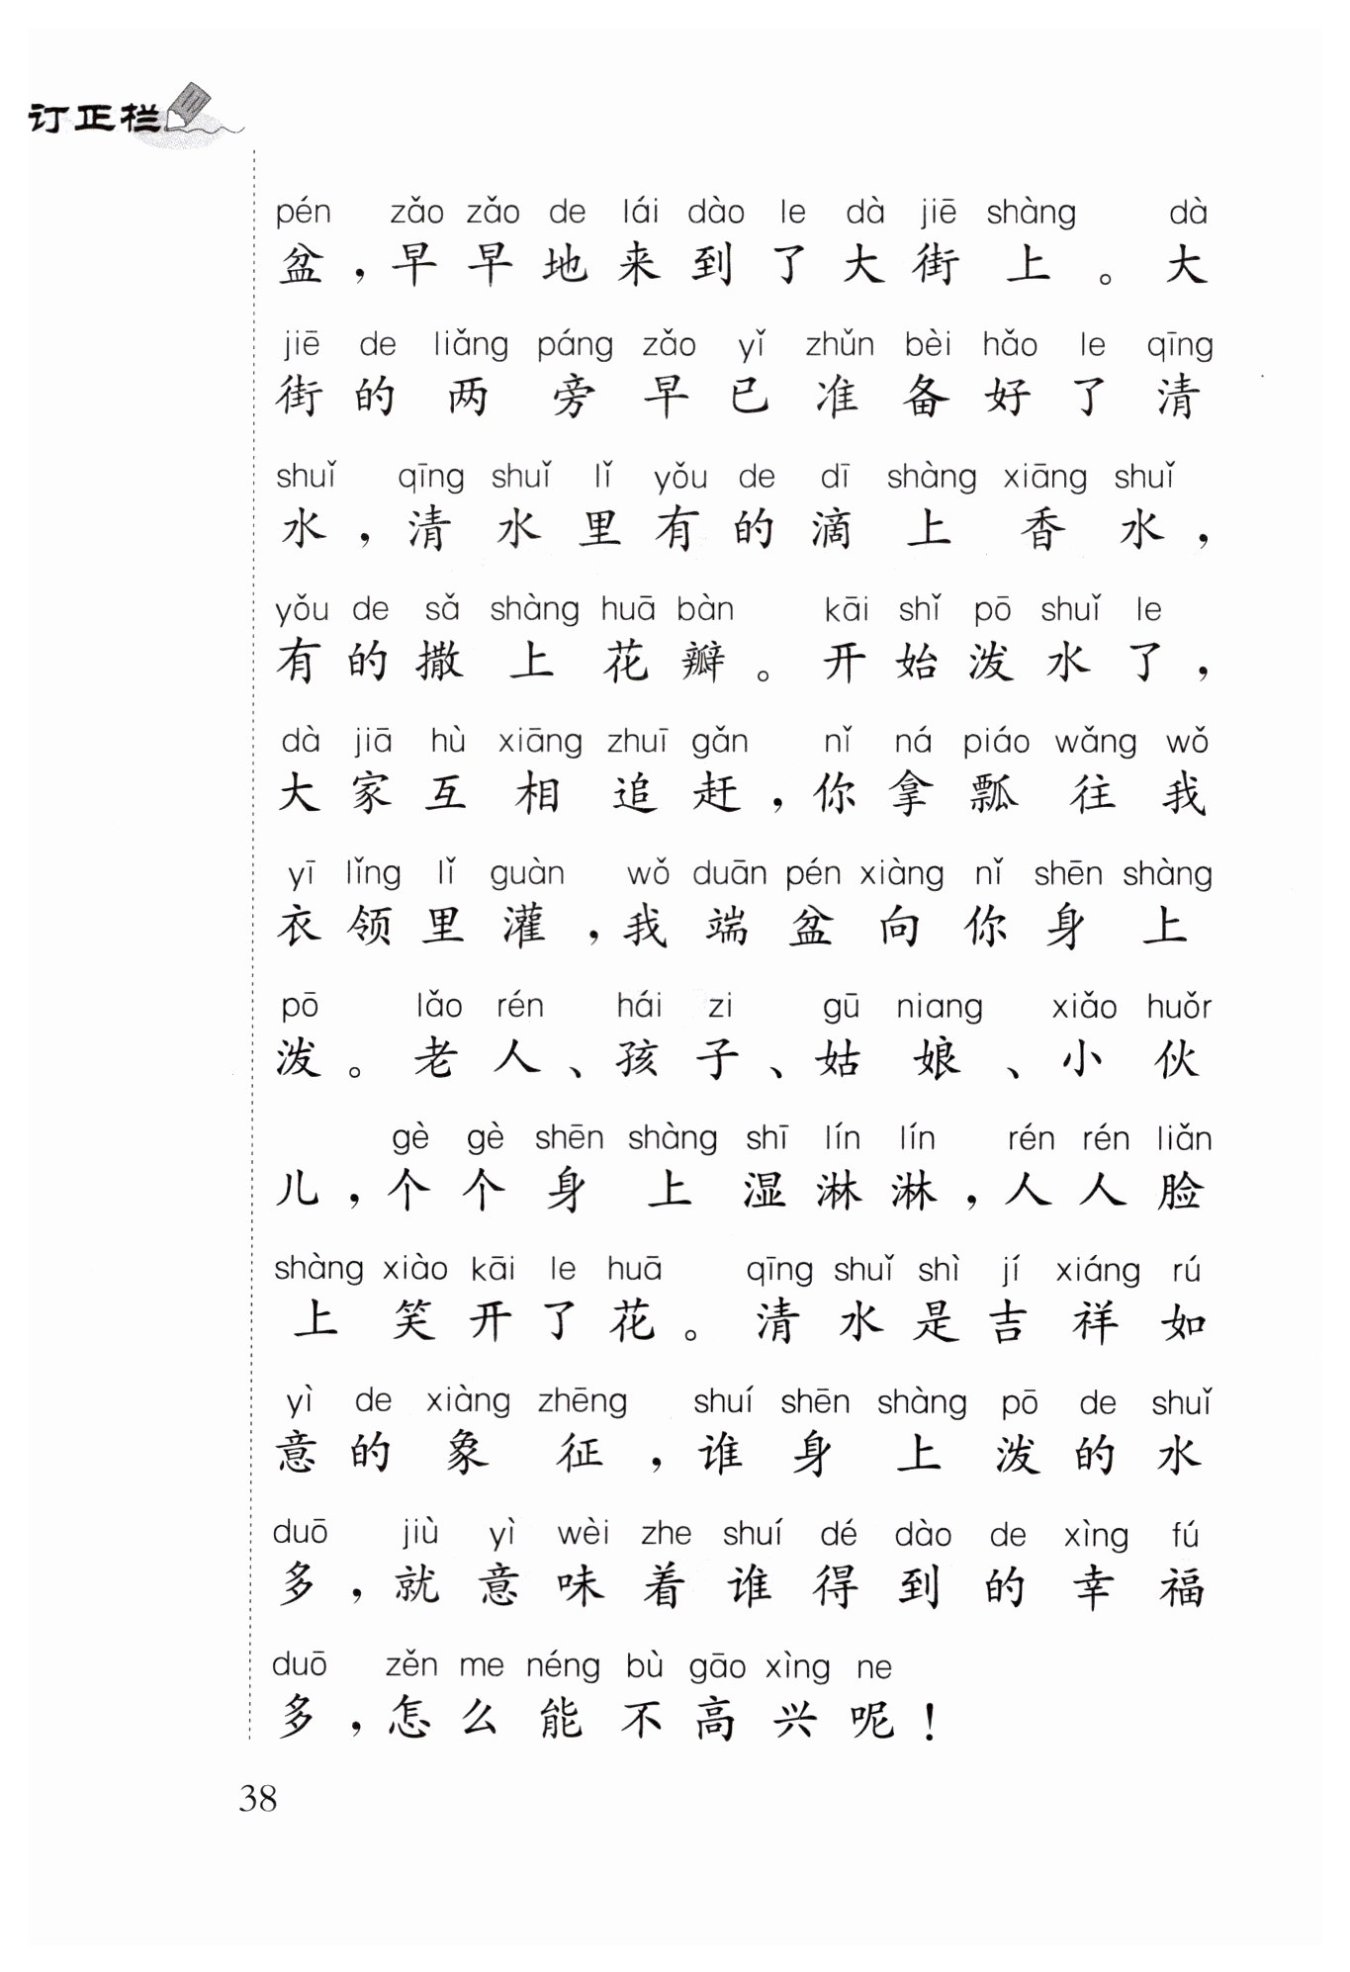 订正栏
pén zǎo zǎo de lái dào le dà jiē shàng dà
盆，早早地来到了大街上。大
jiē de liǎng páng zǎo yǐ zhǔn bèi hǎo le qīng
街的两旁早已准备好了清
shuǐ qīng shuǐ lǐ yǒu de dī shàng xiāng shuǐ
水，清水里有的滴上香水，
yǒu de sǎ shàng huā bàn kāi shǐ pō shuǐ le
有的撒上花瓣。开始泼水了，
dà jiā hù xiāng zhuī gǎn nǐ ná piáo wǎng wǒ
大家互相追赶，你拿瓢往我
yī lǐng lǐ guàn wǒ duān pén xiàng nǐ shēn shàng
衣领里灌，我端盆向你身上
pō lǎo rén hái zi gū niang xiǎo huǒr
泼。老人、孩子、姑娘、小伙
gè gè shēn shàng shī lín lín rén rén liǎn
儿，个个身上湿淋淋，人人脸
shàng xiào kāi le huā qīng shuǐ shì jí xiáng rú
上笑开了花。清水是吉祥如
yì de xiàng zhēng shuí shēn shàng pō de shuǐ
意的象征，谁身上泼的水
duō jiù yì wèi zhe shuí dé dào de xìng fú
多，就意味着谁得到的幸福
duō zěn me néng bù gāo xìng ne
多，怎么能不高兴呢！
38